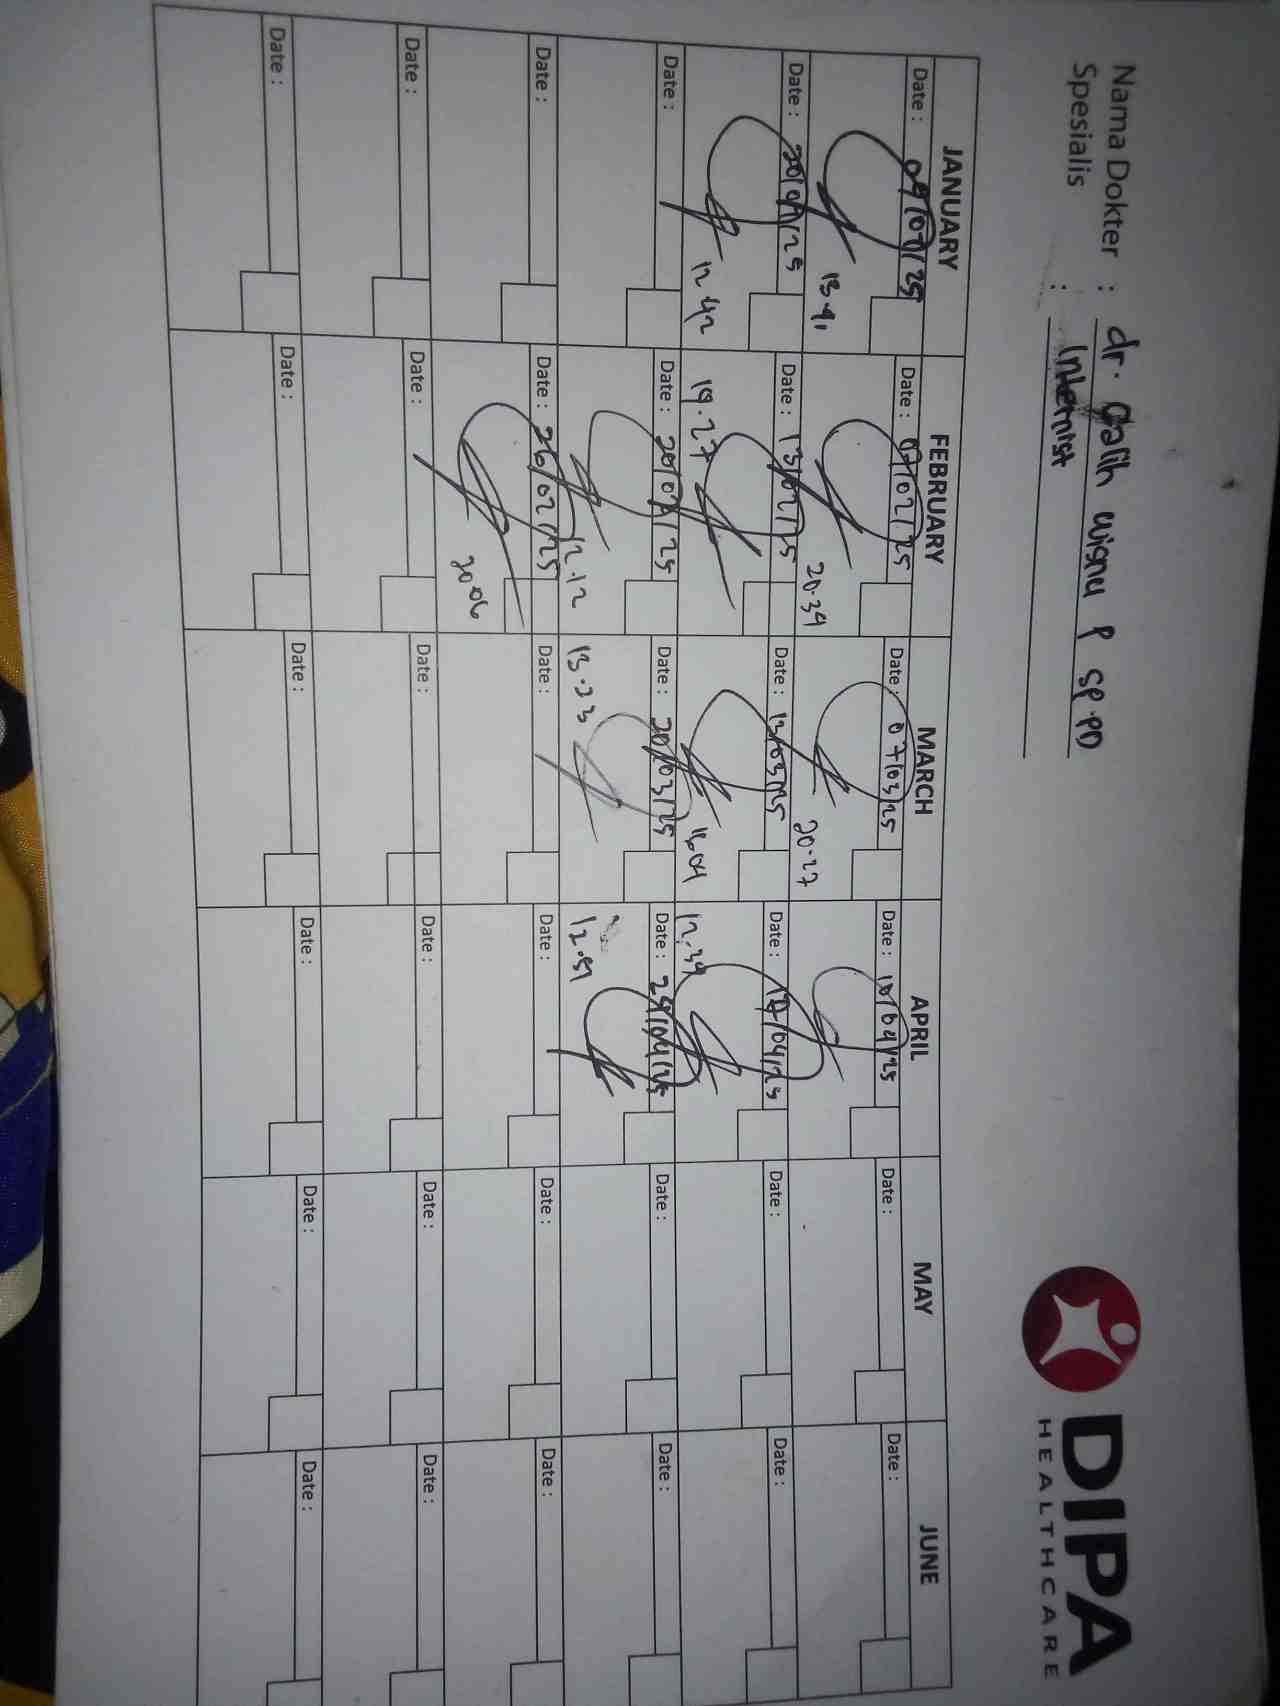 Nama Dokter : dr. Galih wisnu P SP.PD
Spesialis : Internist
DIPA
HEALTHCARE
JANUARY FEBRUARY MARCH APRIL MAY JUNE
Date : 09/01/25 Date : 07/02/25 Date : 07/03/25 Date : 10/04/25 Date : Date :
13.41 20.34 20.27
Date : 20/01/25 Date : 13/02/25 Date : 13/03/25 Date : 17/04/25 Date : Date :
12 42 19.27 12.39
Date : Date : 20/02/25 Date : 20/03/25 Date : 24/04/25 Date : Date :
12.12 13.23 12.51
Date : Date : 26/02/25 Date : Date : Date : Date :
20.06
Date : Date : Date : Date : Date : Date :
Date : Date : Date : Date : Date : Date :